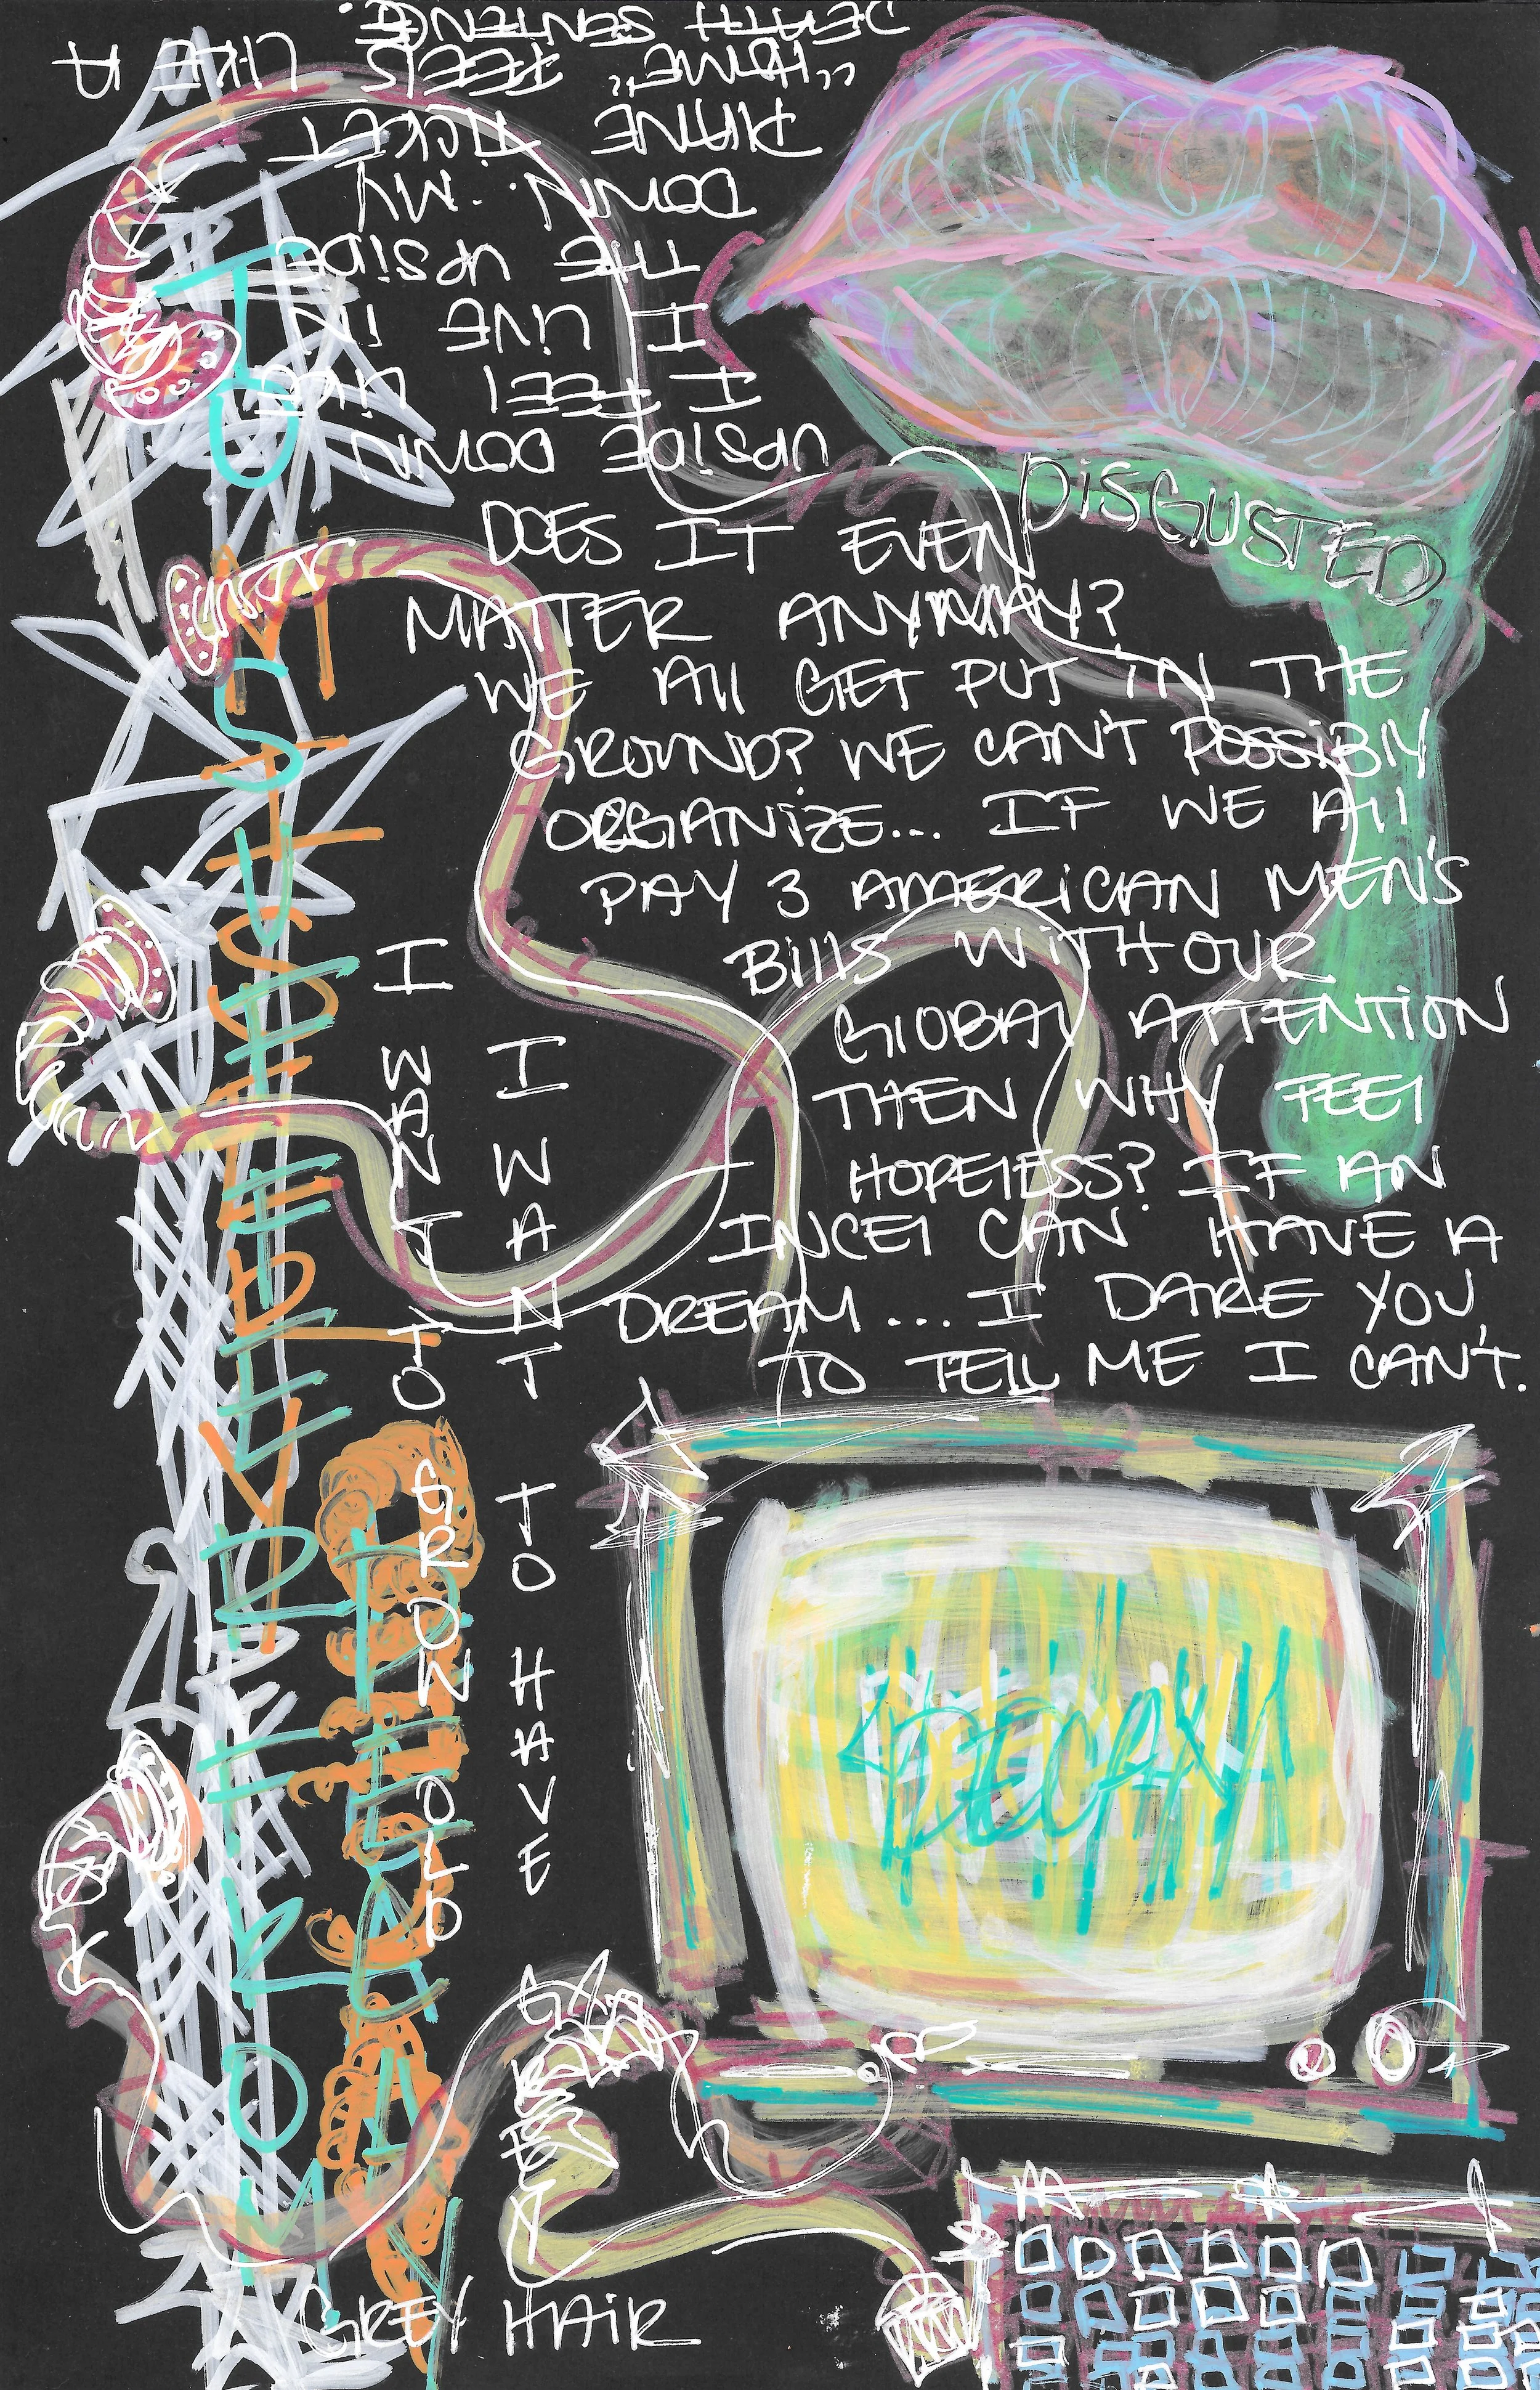 UPSIDE DOWN
I FEEL LIKE
I LIVE IN
THE UPSIDE
DOWN. MY
PLANE TICKET
"HOME" FEELS LIKE A
DEATH SENTENCE.
DISGUSTED
DOES IT EVEN
MATTER ANYWAY?
WE All GET PUT IN THE
GROUND? WE CAN'T POSSIBlY
ORGANIZE... IF WE All
PAY 3 AMERICAN MEN'S
Bills WITH OUR
GlOBAl ATTENTION
THEN WHY FEEl
HOPElESS? IF AN
INCEl CAN HAVE A
DREAM... I DARE YOU
TO TELL ME I CAN'T.
I WANT TO GROW OLD
I WANT TO HAVE
GREY HAIR
DECAY